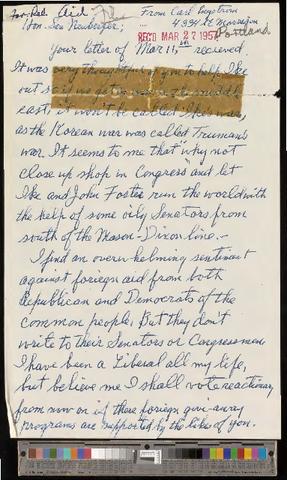 For. Rel. Aid
From Carl Engstrom
Hon. Sen Neuberger;
4934 SE Morrison
REC'D MAR 27 1957
Portland
Your letter of Mar 11, received.
It was very thoughtful of you to help Ike
out so if we get in war in the middle
east, it won't be called Ike's war,
as the Korean war was called Truman's
war. It seems to me that "why not
close up shop in Congress" and let
Ike and John Foster run the world with
the help of some oily Senators from
south of the Mason-Dixon line.-
I find an overwhelming sentiment
against foriegn aid from both
Republican and Democrats of the
common people, But they don't
write to their Senators or Congressmen.
I have been a Liberal all my life,
but believe me I shall vote reactionary
from now on if these foriegn give-away
programs are supported by the likes of you.